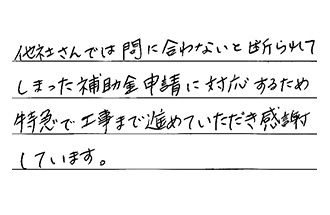 他社さんでは間に合わないと断られて
しまった補助金申請に対応するため
特急で工事まで進めていただき感謝
しています。